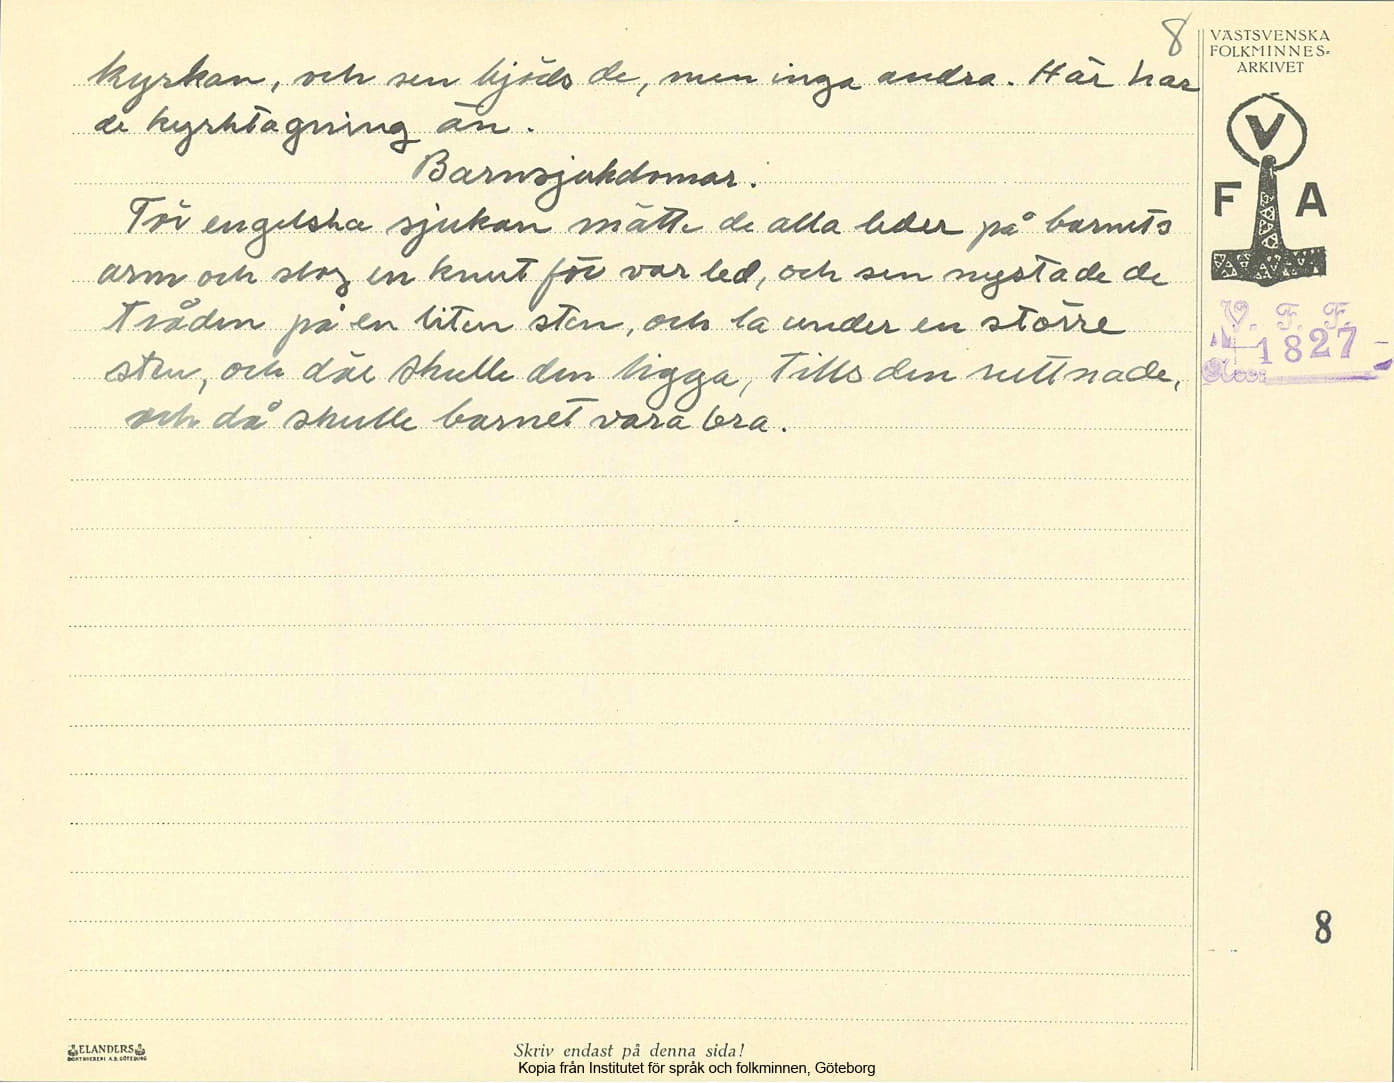 8
VÄSTSVENSKA
FOLKMINNES-
ARKIVET
V
F A
V. F. F.
1827
kyrkan, och sen bjöds de, men inga andra. Här har
de kyrktagning än.
Barnsjukdomar.
För engelska sjukan mätte de alla leder på barnets
arm och slog en knut för var led, och sen nystade de
tråden på en liten sten, och la under en större
sten, och där skulle den ligga, tills den ruttnade,
och då skulle barnet vara bra.
8
ELANDERS
BOKTRYCKERI A.B. GÖTEBORG
Skriv endast på denna sida!
Kopia från Institutet för språk och folkminnen, Göteborg